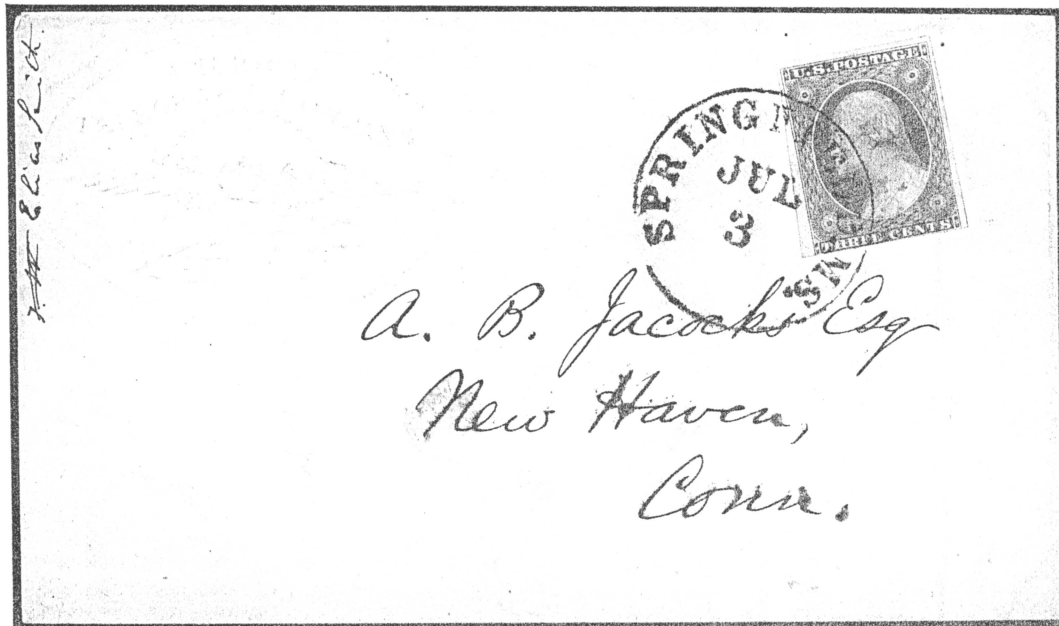 Elias Smith.
U.S. POSTAGE
THREE CENTS
SPRINGFIELD MS.
JUL
3
A. B. Jacocks Esq
New Haven,
Conn.